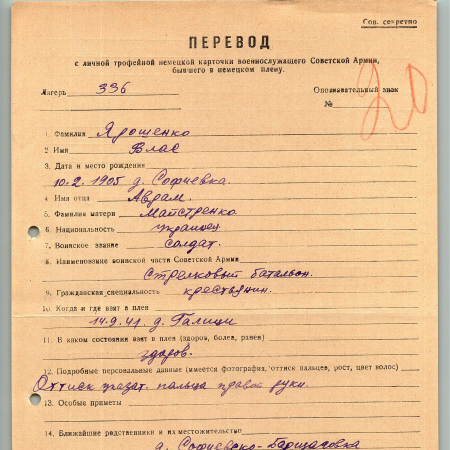 Сов. секретно
ПЕРЕВОД
с личной трофейной немецкой карточки военнослужащего Советской Армии,
бывшего в немецком плену.
Лагерь 336 Опознавательный знак
№
20
1. Фамилия Ярошенко
2 Имя Влас
3. Дата и место рождения
10.2. 1905 д. Софиевка.
4 Имя отца Аврам.
5 Фамилия матери Майстренко
6. Национальность украинец
7. Воинское звание солдат.
8. Наименование воинской части Советской Армии
Стрелковый батальон.
9. Гражданская специальность крестьянин.
10. Когда и где взят в плен
14.9.41. д. Галици
11. В каком состоянии взят в плен (здоров, болен, ранен)
здоров.
12. Подробные персональные данные (имеется фотография, оттиск пальцев, рост, цвет волос)
Оттиск указат. пальца правой руки.
13. Особые приметы
14. Ближайшие родственники и их местожительство
д. Софиевско-